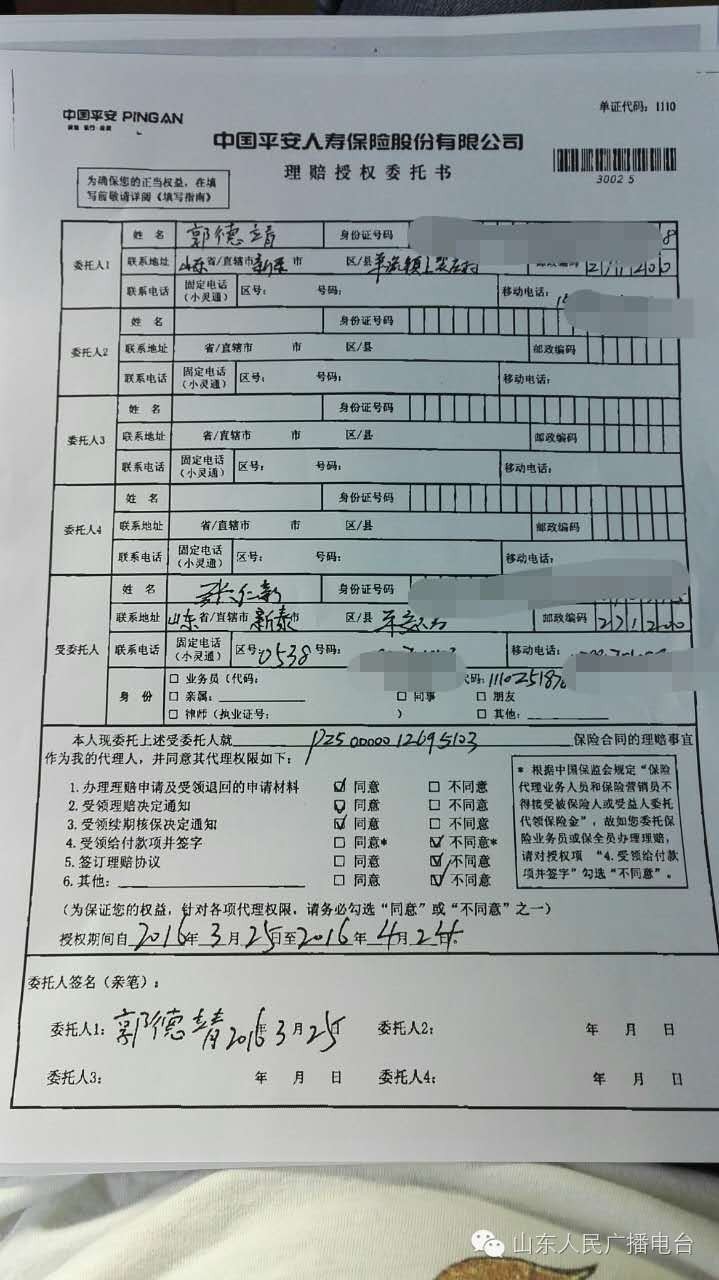 单证代码：1110
中国平安 PINGAN
保险·银行·投资
中国平安人寿保险股份有限公司
理赔授权委托书
3002 5
为确保您的正当权益，在填
写前敬请详阅《填写指南》
委托人1
姓 名 郭德靖 身份证号码 8
联系地址 山东 省/直辖市 新泰 市 区/县 邮政编码 271200
联系电话 固定电话（小灵通） 区号： 号码： 移动电话：
委托人2
姓 名 身份证号码
联系地址 省/直辖市 市 区/县 邮政编码
联系电话 固定电话（小灵通） 区号： 号码： 移动电话：
委托人3
姓 名 身份证号码
联系地址 省/直辖市 市 区/县 邮政编码
联系电话 固定电话（小灵通） 区号： 号码： 移动电话：
委托人4
姓 名 身份证号码
联系地址 省/直辖市 市 区/县 邮政编码
联系电话 固定电话（小灵通） 区号： 号码： 移动电话：
受委托人
姓 名 张仁新 身份证号码
联系地址 山东 省/直辖市 新泰 市 区/县 邮政编码 271200
联系电话 固定电话（小灵通） 区号：0538 号码： 移动电话：
身 份 □ 业务员（代码： 代码：
□ 亲属： □ 同事 □ 朋友
□ 律师（执业证号： ） □ 其他：
本人现委托上述受委托人就 保险合同的理赔事宜
作为我的代理人，并同意其代理权限如下：
1. 办理理赔申请及受领退回的申请材料 ☑ 同意 □ 不同意
2. 受领理赔决定通知 ☑ 同意 □ 不同意
3. 受领续期核保决定通知 ☑ 同意 □ 不同意
4. 受领给付款项并签字 □ 同意* ☑ 不同意*
5. 签订理赔协议 □ 同意 ☑ 不同意
6. 其他： □ 同意 ☑ 不同意
* 根据中国保监会规定“保险
代理业务人员和保险营销员不
得接受被保险人或受益人委托
代领保险金”，故如您委托保
险业务员或保全员办理理赔，
请对授权项“4. 受领给付款
项并签字”勾选“不同意”。
（为保证您的权益，针对各项代理权限，请务必勾选“同意”或“不同意”之一）
授权期间自 2016 年 3 月 25 日至 2016 年 4 月 24 日。
委托人签名（亲笔）：
委托人1：郭德靖 2016 年 3 月 25 日 委托人2： 年 月 日
委托人3： 年 月 日 委托人4： 年 月 日
山东人民广播电台